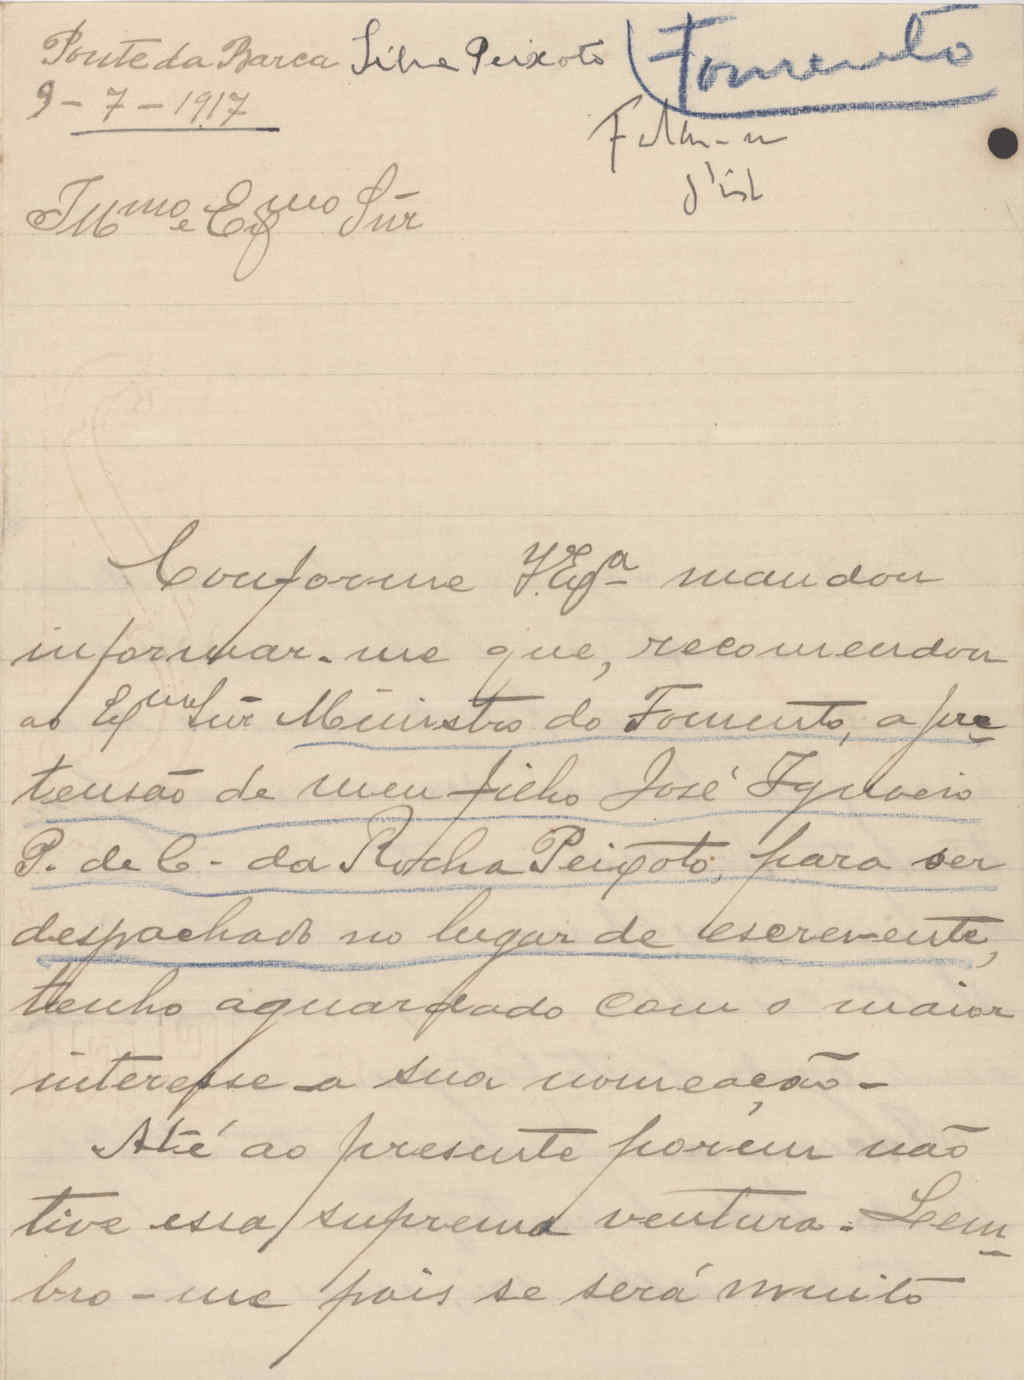 Ponte da Barca Silva Peixoto Fomento
9-7-1917
Illmo e Exmo Snr
Conforme V. Exª mandou
informar-me que, recomendou
ao Exmo Snr Ministro do Fomento, a pre
tensão de meu filho José Ignacio
P. de C. da Rocha Peixoto, para ser
despachado no lugar de escrevente,
tenho aguardado com o maior
interesse a sua nomeação -
Até ao presente porém não
tive essa suprema ventura. Lem
bro-me pois se será muito